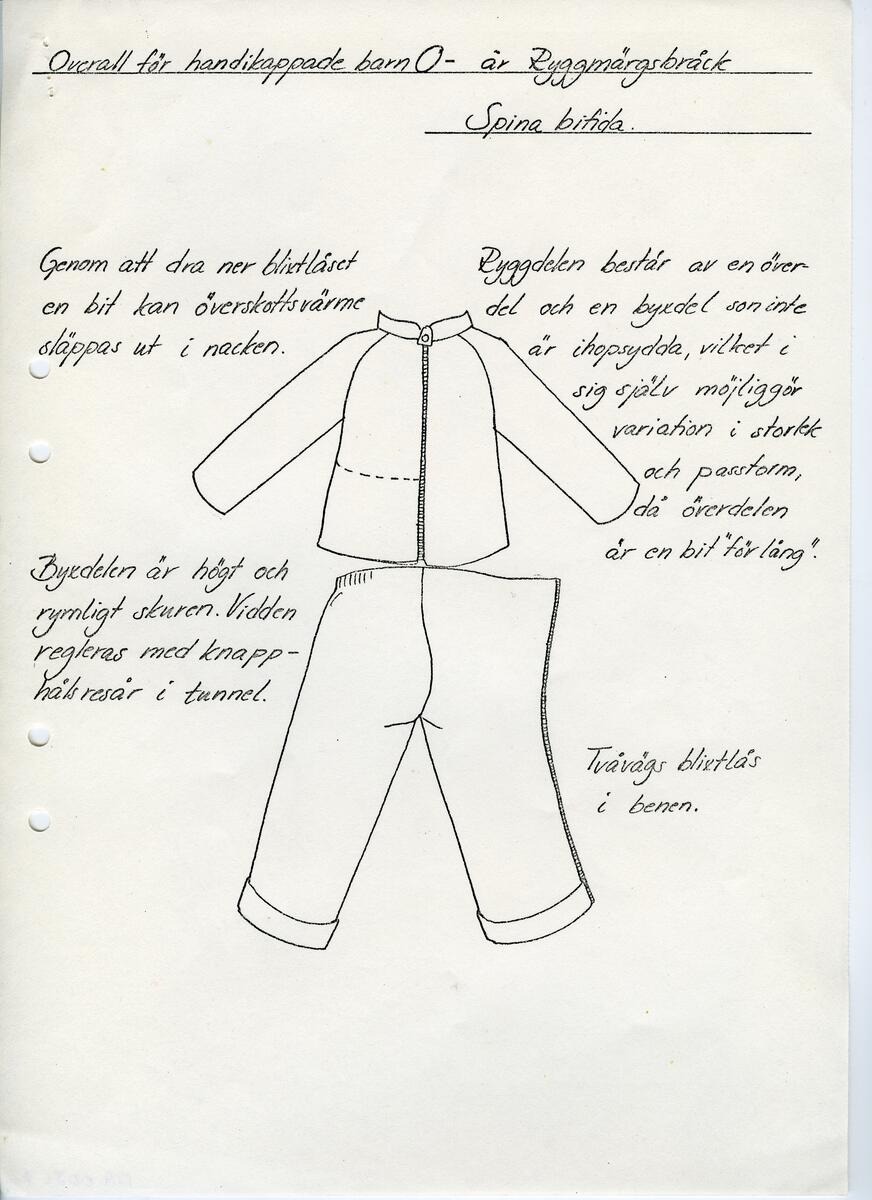 Overall för handikappade barn 0- år Ryggmärgsbråck
Spina bifida.
Genom att dra ner blixtlåset
en bit kan överskottsvärme
släppas ut i nacken.
Ryggdelen består av en över-
del och en byxdel som inte
är ihopsydda, vilket i
sig själv möjliggör
variation i storlek
och passform,
då överdelen
är en bit "för lång".
Byxdelen är högt och
rymligt skuren. Vidden
regleras med knapp-
hålsresår i tunnel.
Tvåvägs blixtlås
i benen.